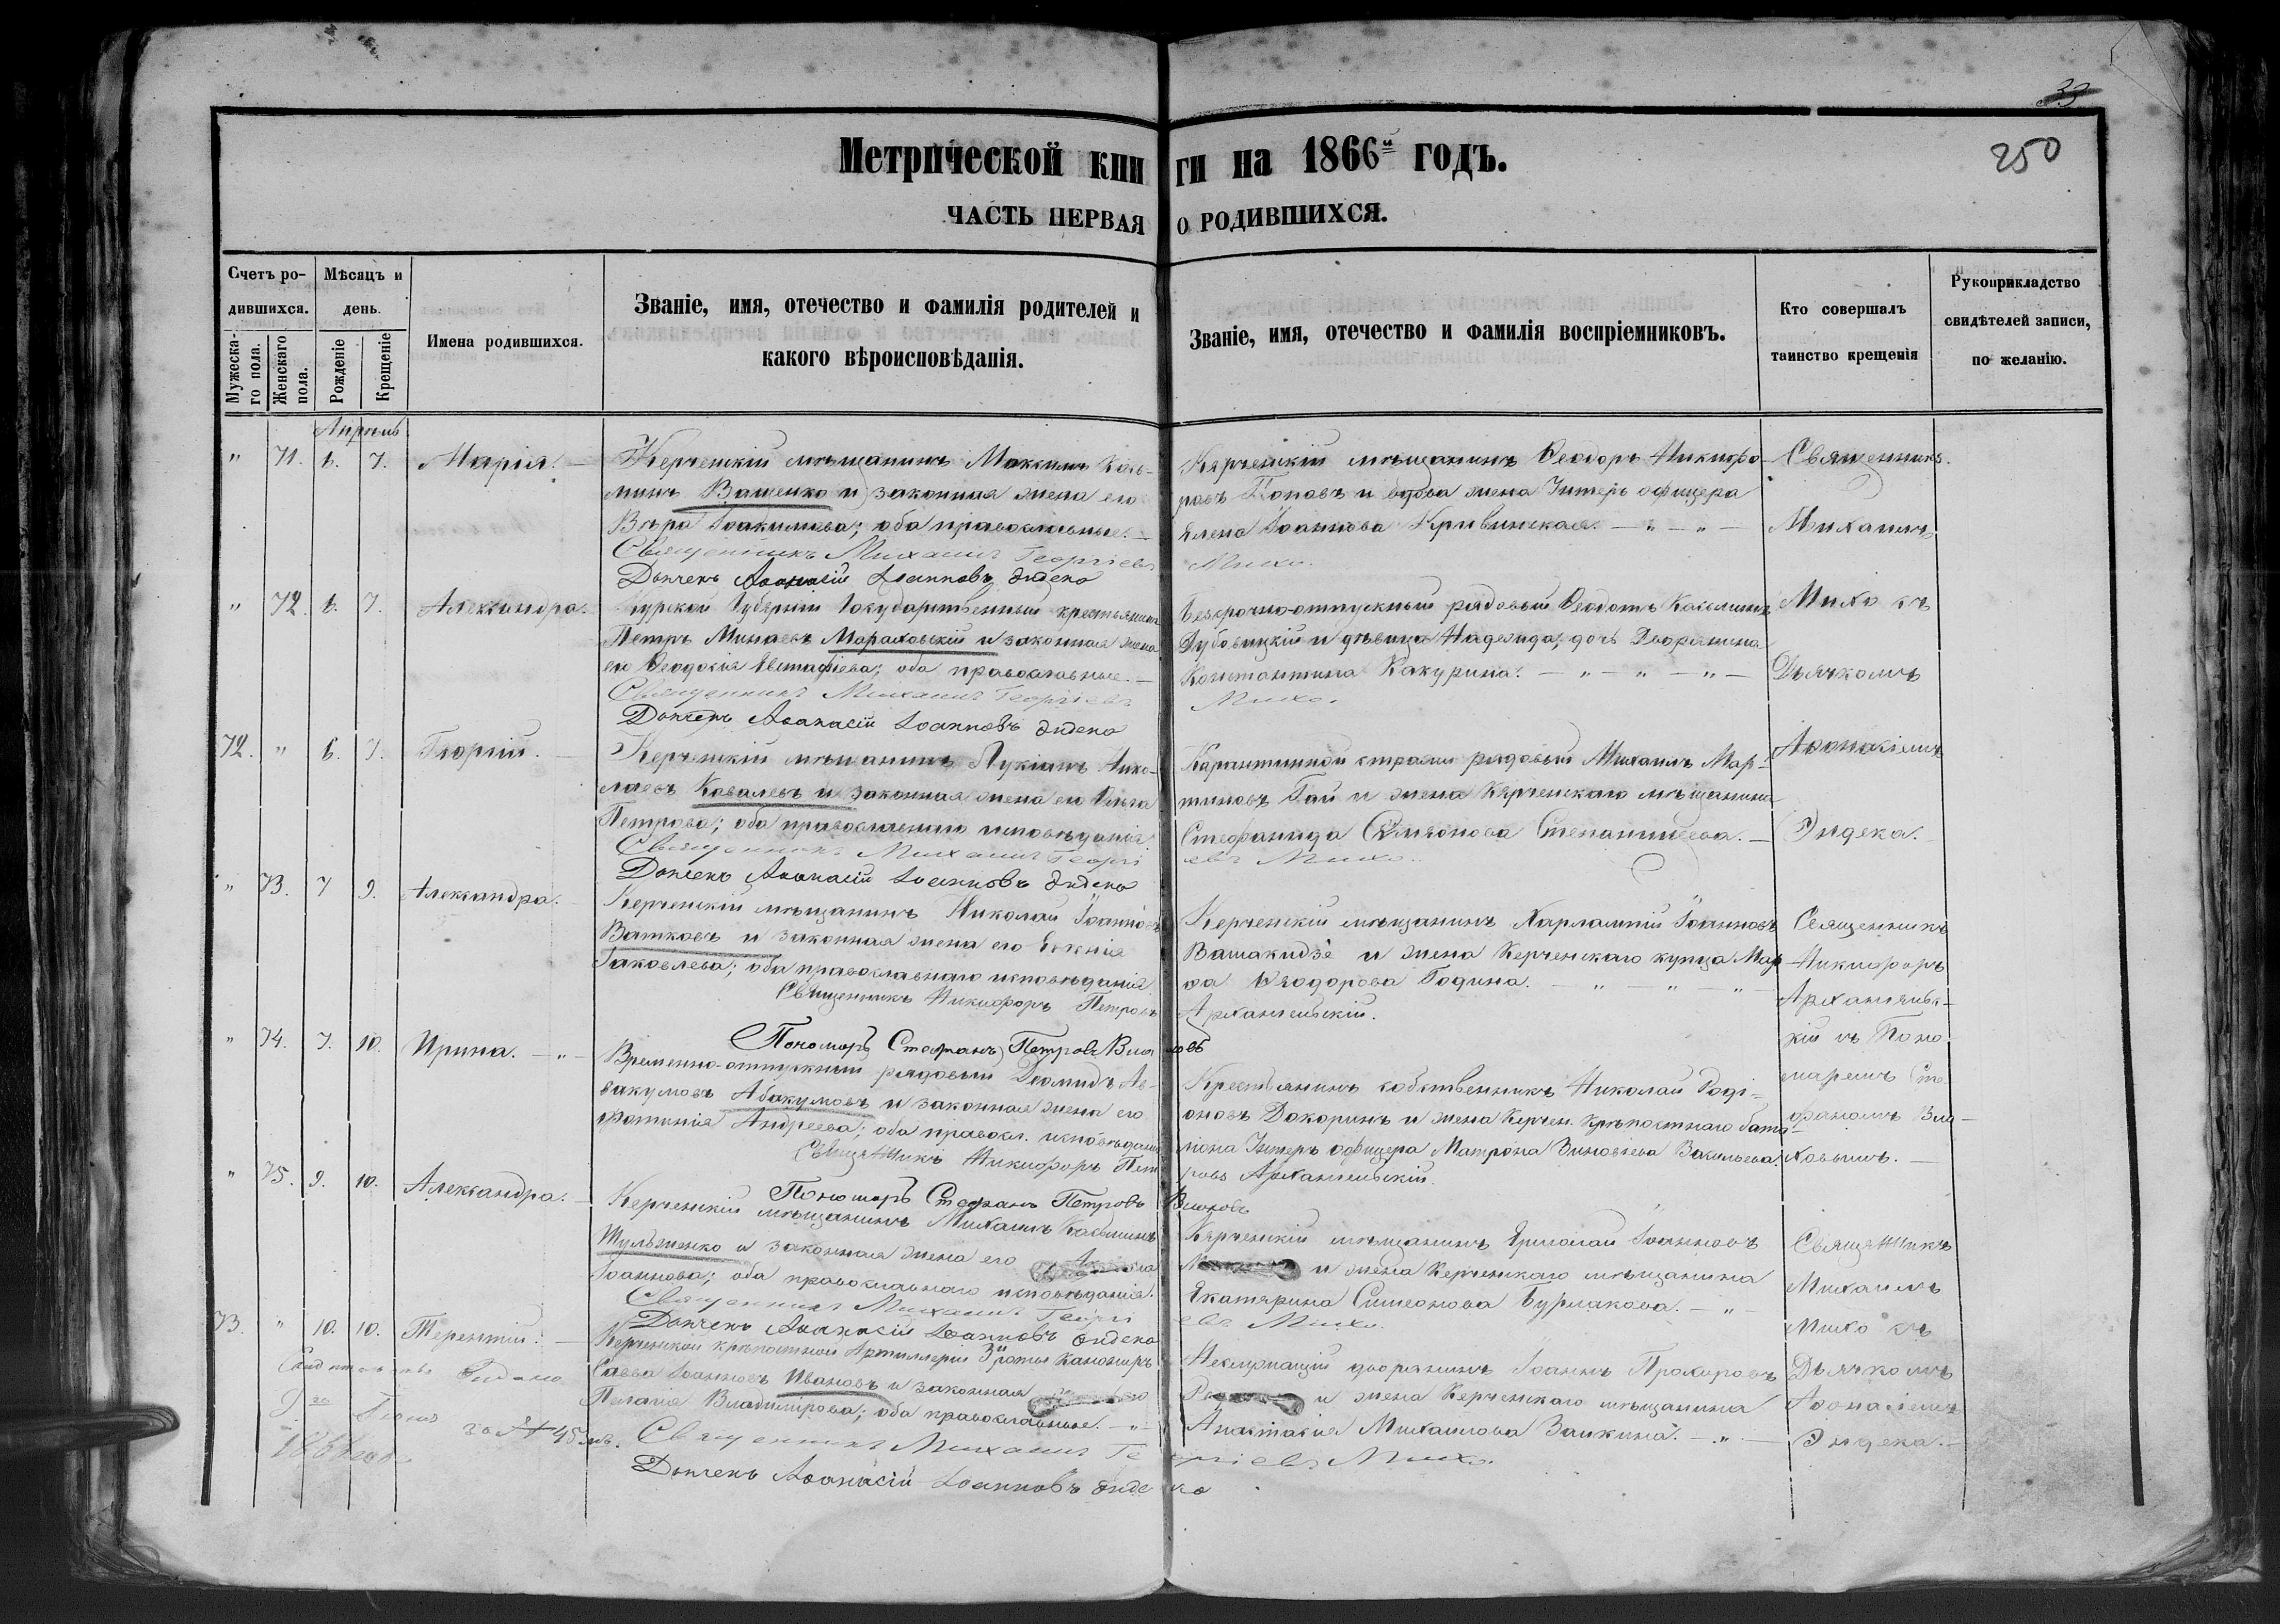 33
250
Метрической книги на 1866й годъ.
ЧАСТЬ ПЕРВАЯ О РОДИВШИХСЯ.
Счетъ родившихся.
Мужескаго пола.
Женскаго пола.
Мѣсяцъ и день.
Рожденіе
Крещеніе
Имена родившихся.
Званіе, имя, отечество и фамилія родителей и
какого вѣроисповѣданія.
Званіе, имя, отечество и фамилія воспріемниковъ.
Кто совершалъ
таинство крещенія
Рукоприкладство
свидѣтелей записи,
по желанію.
Апрель
" 71. 6. 7. Марія.
Керченскій мѣщанинъ Максимъ Козь-
минъ Ващенко и законная жена его
Вѣра Іоакимова; оба православные.
Священникъ Михаилъ Георгіевъ Михо.
Дьячекъ Аѳанасій Іоанновъ Дидека
Керченскій мѣщанинъ Ѳеодоръ Никифо-
ровъ Поповъ и вдова жена Унтеръ офицера
Елена Іоаннова Кривинская.
Священникъ
Михаилъ
Михо съ
Дьячкомъ
Аѳанасіемъ
Дидека.
" 72. 6. 7. Александра.
Курской Губерніи Государственный крестьянинъ
Петръ Минаевъ Мараховскій и законная жена
его Ѳеодосія Евстафіева; оба православные.
Священникъ Михаилъ Георгіевъ Михо.
Дьячекъ Аѳанасій Іоанновъ Дидека
Безсрочно-отпускный рядовый Ѳеодотъ Козьминъ
Дубовицкій и дѣвица Надежда, дочь Дворянина
Константина Какурина.
72. " 6. 7. Георгій.
Керченскій мѣщанинъ Лукіанъ Нико-
лаевъ Ковалевъ и законная жена его Ольга
Петрова; оба православнаго исповѣданія.
Священникъ Михаилъ Георгіевъ Михо.
Дьячекъ Аѳанасій Іоанновъ Дидека
Карантинной стражи рядовый Михаилъ Мар-
тиновъ Гай и жена Керченскаго мѣщанина
Стефанида Симеонова
" 73. 7 9. Александра.
Керченскій мѣщанинъ Николай Іоанновъ
Ватковъ и законная жена его Евгенія
Іаковлева; оба православнаго исповѣданія
Священникъ Никифоръ Петровъ Архангельскій.
Пономарь Стефанъ Петровъ
Керченскій мѣщанинъ Харлампій Іоанновъ
Вашакидзе и жена Керченскаго купца Мар-
ѳа Ѳеодорова Година.
Священникъ
Никифоръ
Архангельс-
кій съ Поно-
маремъ Сте-
фаномъ
" 74. 7. 10. Ирина.
Временно-отпускный рядовый Діомидъ Ав-
вакумовъ Абакумовъ и законная жена его
Фотинія Андреева; оба правосл. исповѣданія
Священникъ Никифоръ Петровъ Архангельскій.
Пономарь Стефанъ Петровъ
Крестьянинъ собственникъ Николай Родi-
оновъ Докоринъ и жена Керчен. крѣпостнаго бата-
ліона Унтеръ офицера Матрона Зиновіева Васильева.
" 75. 9. 10. Александра.
Керченскій мѣщанинъ Михаилъ Козьминъ
Шульженко и законная жена его
Іоаннова; оба православнаго исповѣданія.
Священникъ Михаилъ Георгіевъ Михо.
Дьячекъ Аѳанасій Іоанновъ Дидека
Керченскій мѣщанинъ Ермолай Іоанновъ
и жена Керченскаго мѣщанина
Екатерина Симеонова Бурлакова.
Священникъ
Михаилъ
Михо съ
Дьячкомъ
Аѳанасіемъ
Дидека.
73. " 10. 10. Терентій.
Керченской крѣпостной Артиллеріи 3й роты канониръ
Савва Іоанновъ Ивановъ и законная
Пелагія Владимірова; оба православные.
Священникъ Михаилъ Георгіевъ Михо.
Дьячекъ Аѳанасій Іоанновъ Дидека
дворянинъ Іоаннъ Прохоровъ
и жена Керченскаго мѣщанина
Анастасія Михаилова Заикина.
за № 45